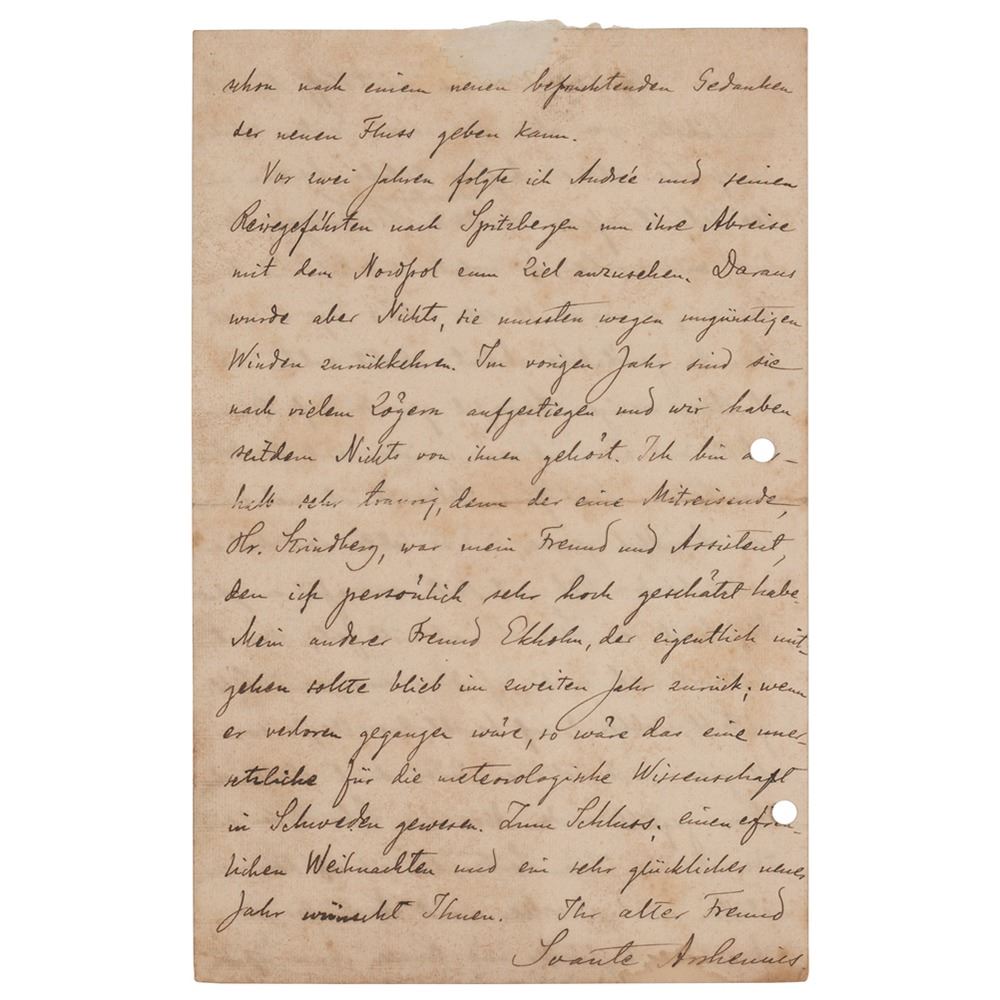 schon nach einem neuen befruchtenden Gedanken
der neuen Fluss geben kann.
Vor zwei Jahren folgte ich Andrée und seinen
Reisegefährten nach Spitzbergen um ihre Abreise
mit dem Nordpol zum Ziel anzusehen. Daraus
wurde aber Nichts, sie mussten wegen ungünstigen
Winden zurückkehren. Im vorigen Jahr sind sie
nach vielem Zögern aufgestiegen und wir haben
seitdem Nichts von ihnen gehört. Ich bin
halb sehr traurig, denn der eine Mitreisende,
Hr. Strindberg, war mein Freund und Assistent,
den ich persönlich sehr hoch geschätzt habe.
Mein anderer Freund Ekholm, der eigentlich mit-
gehen sollte blieb im zweiten Jahr zurück; wenn
er verloren gegangen wäre, so wäre das eine uner-
setzliche für die meteorologische Wissenschaft
in Schweden gewesen. Zum Schluss, einen
lichen Weihnachten und ein sehr glückliches neues
Jahr wünscht Ihnen. Ihr alter Freund
Svante Arrhenius.